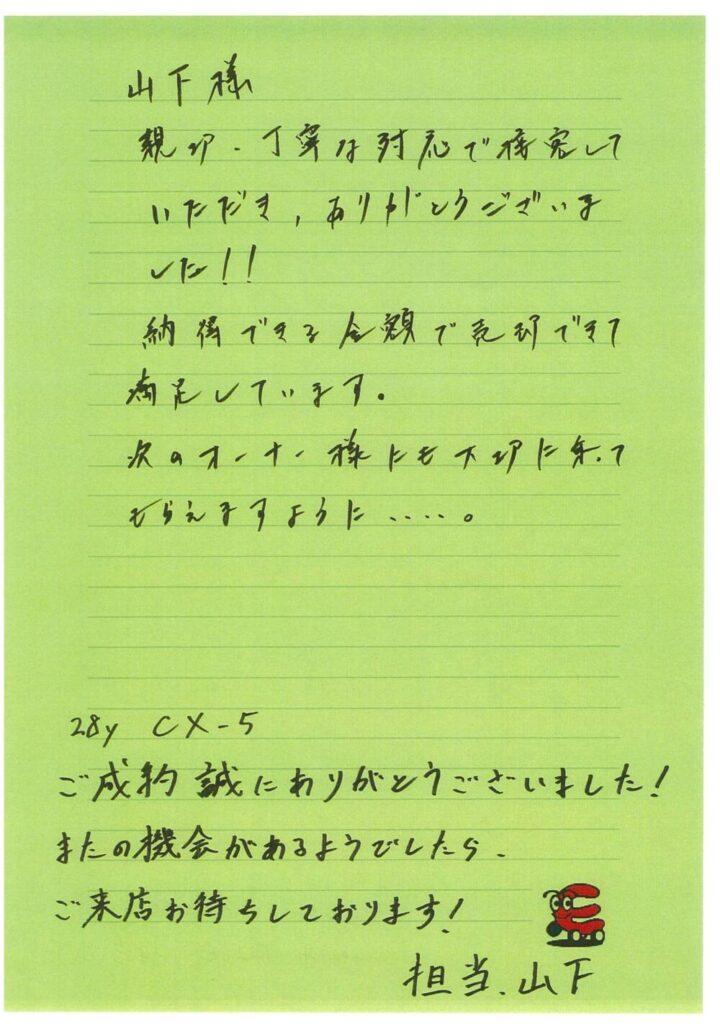 山下様
親切、丁寧な対応で接客して
いただき、ありがとうございま
した!!
納得できる金額で売却できて
満足しています。
次のオーナー様にも大切に乗って
もらえますように・・・・。
28y CX-5
ご成約誠にありがとうございました!
またの機会があるようでしたら、
ご来店お待ちしております!
担当、山下